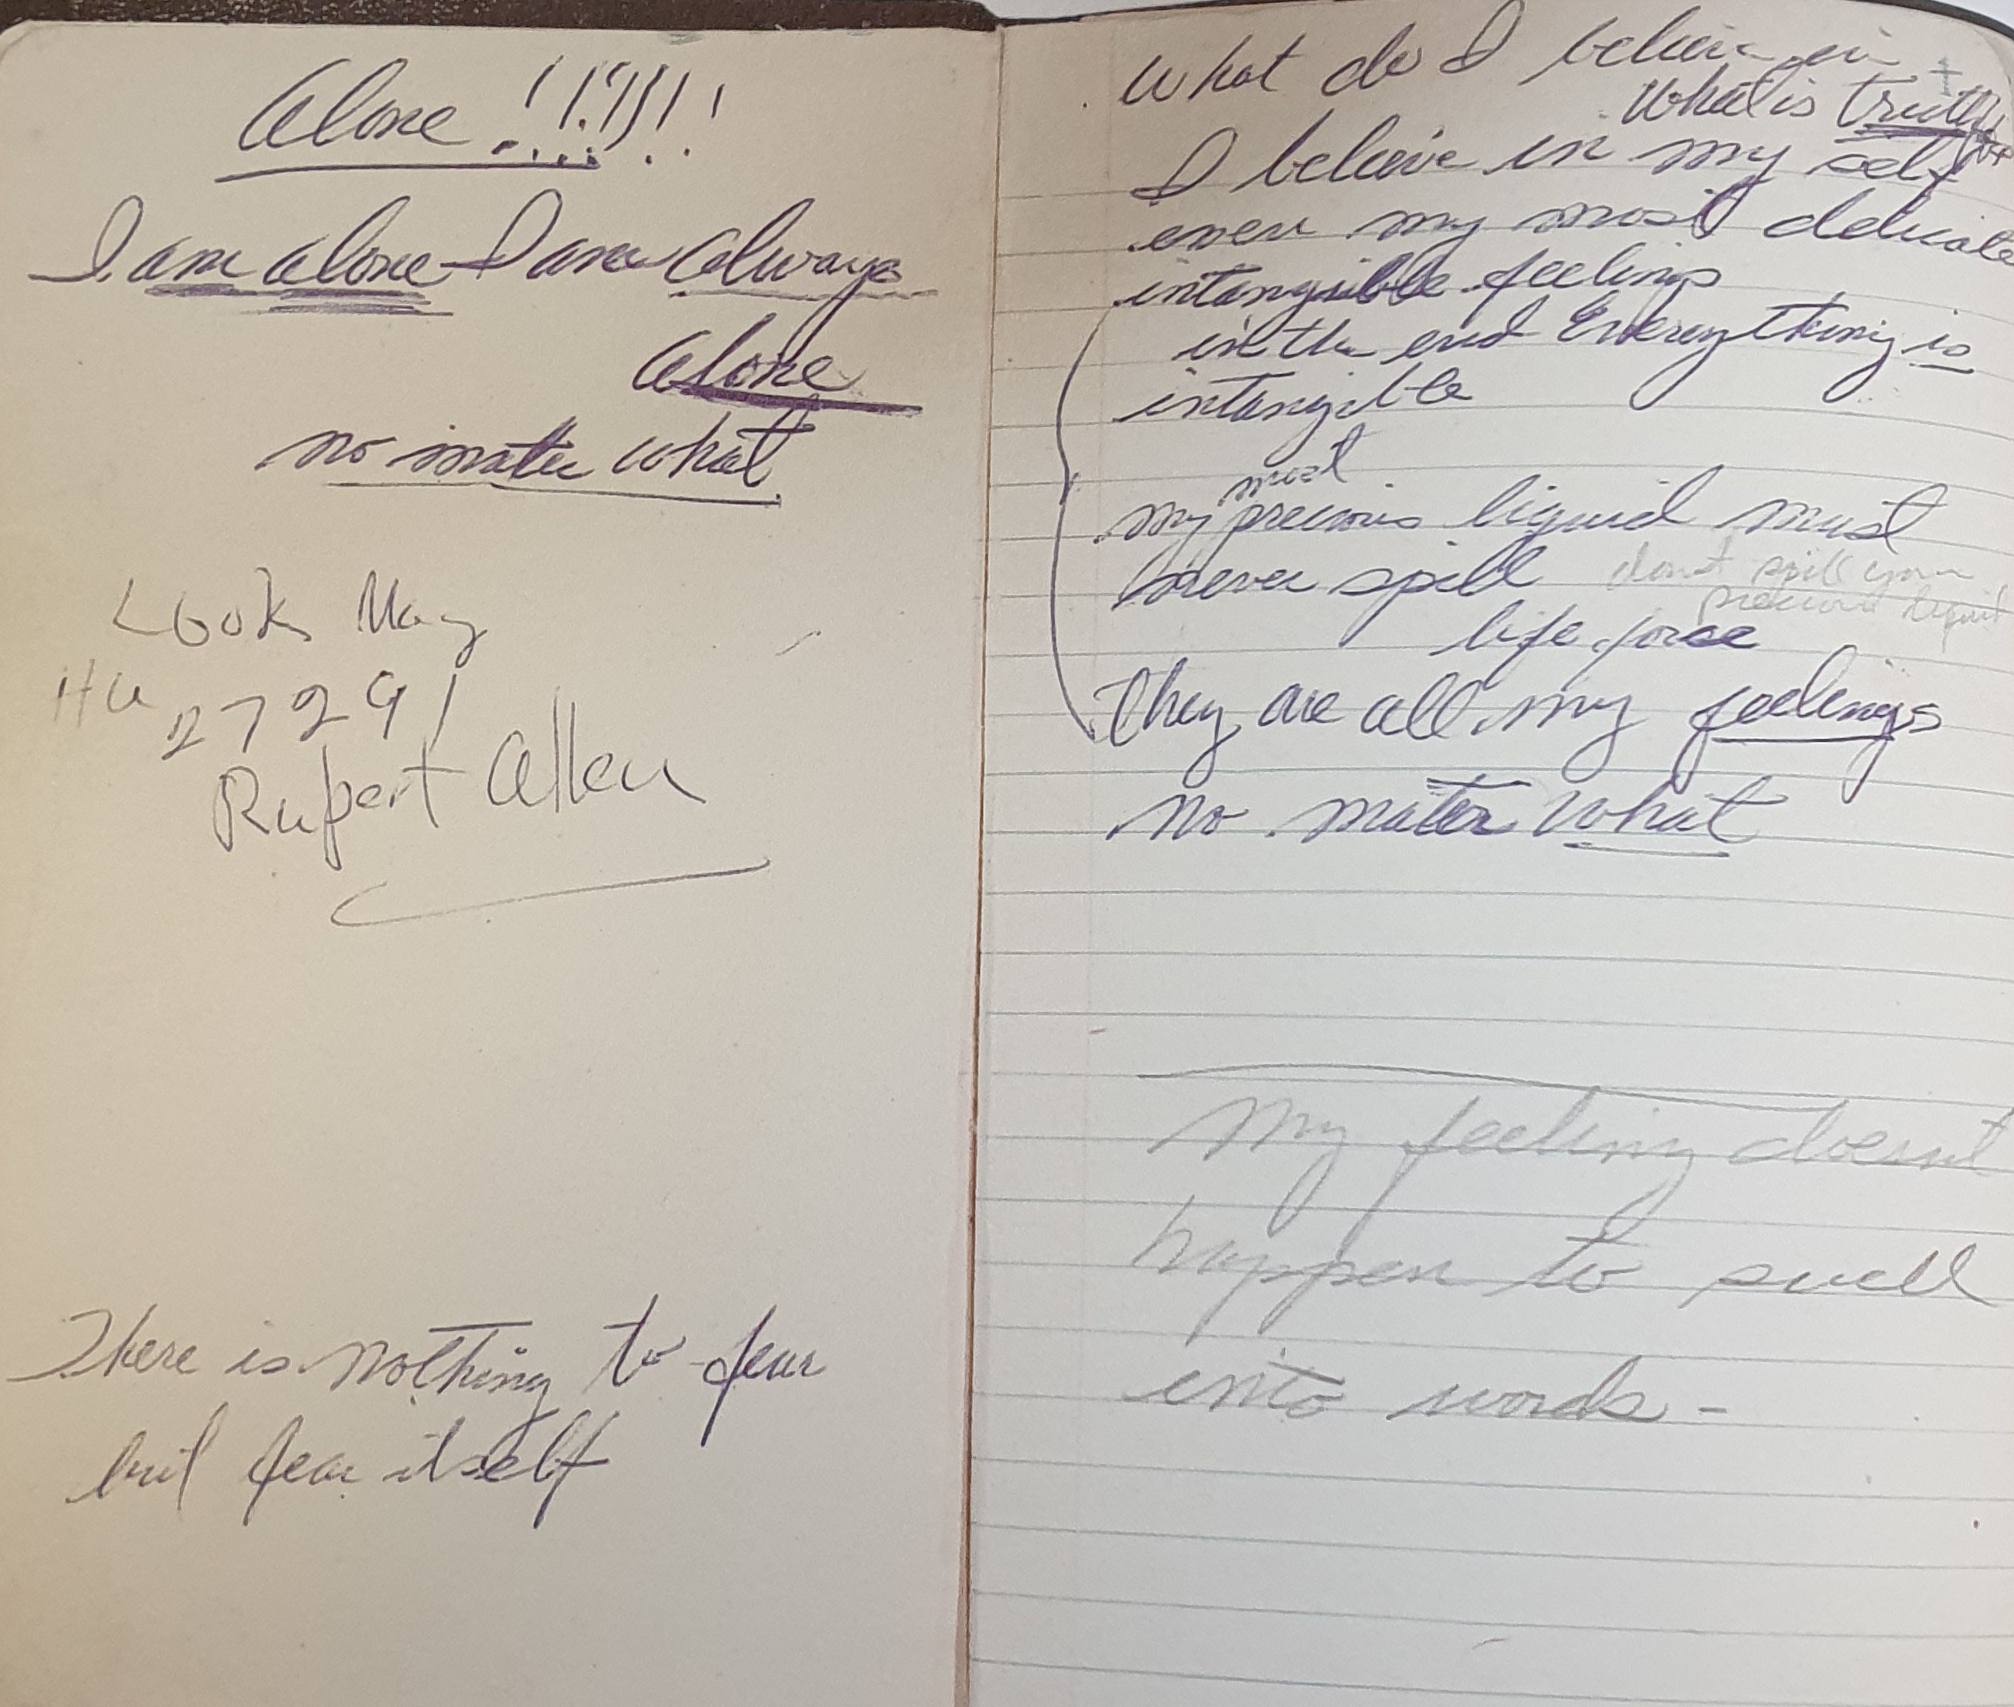 Alone !!!?!!!
I am alone - I am always
alone
no mater what.
Look May
27291
Rupert Allen
There is nothing to fear
but fear itself
What do I believe in
What is truth
I believe in my self
even my most delicate
intangible feelings
in the end Everything is
intangible
most
my precious liquid must
never spill
don't spill your
precious liquid
life force
They are all my feelings
no mater what
My feeling doesnt
happen to swell
into words -